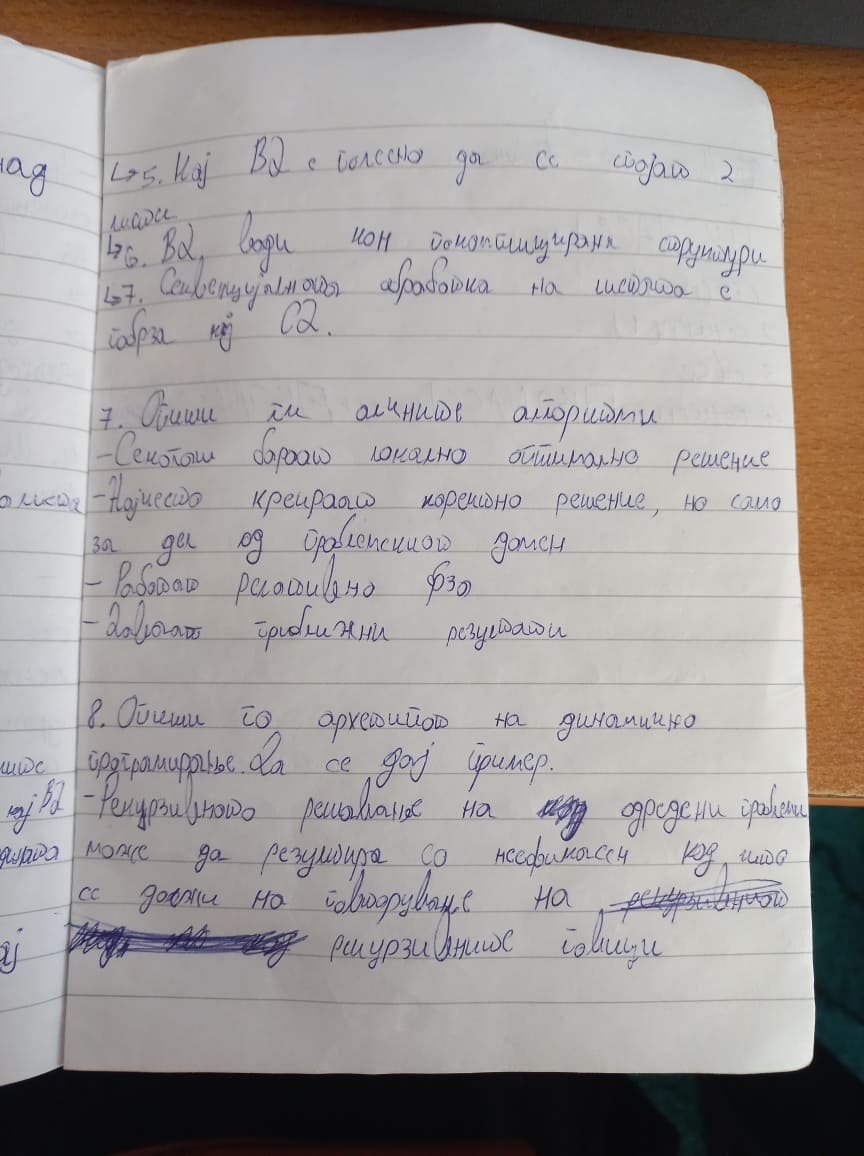 над
↳5. Кај В2 е полесно да се спојат 2
листи
↳6. В2 води кон покомплицирани структури
↳7. Секвенцијалната обработка на листата е
побрза кај С2.
7. Опиши ги алчните алгоритми
-Секогаш бараат локално оптимално решение
-Најчесто креираат коректно решение, но само
за дел од проблемскиот домен
- Работат релативно брзо
- Даваат приближни резултати
8. Опиши го архетипот на динамично
програмирање. Да се дај пример.
-Рекурзивното решавање на одредени проблеми
кај В2
може да резултира со неефикасен код, што
се должи на повторување на
рекурзивните повици